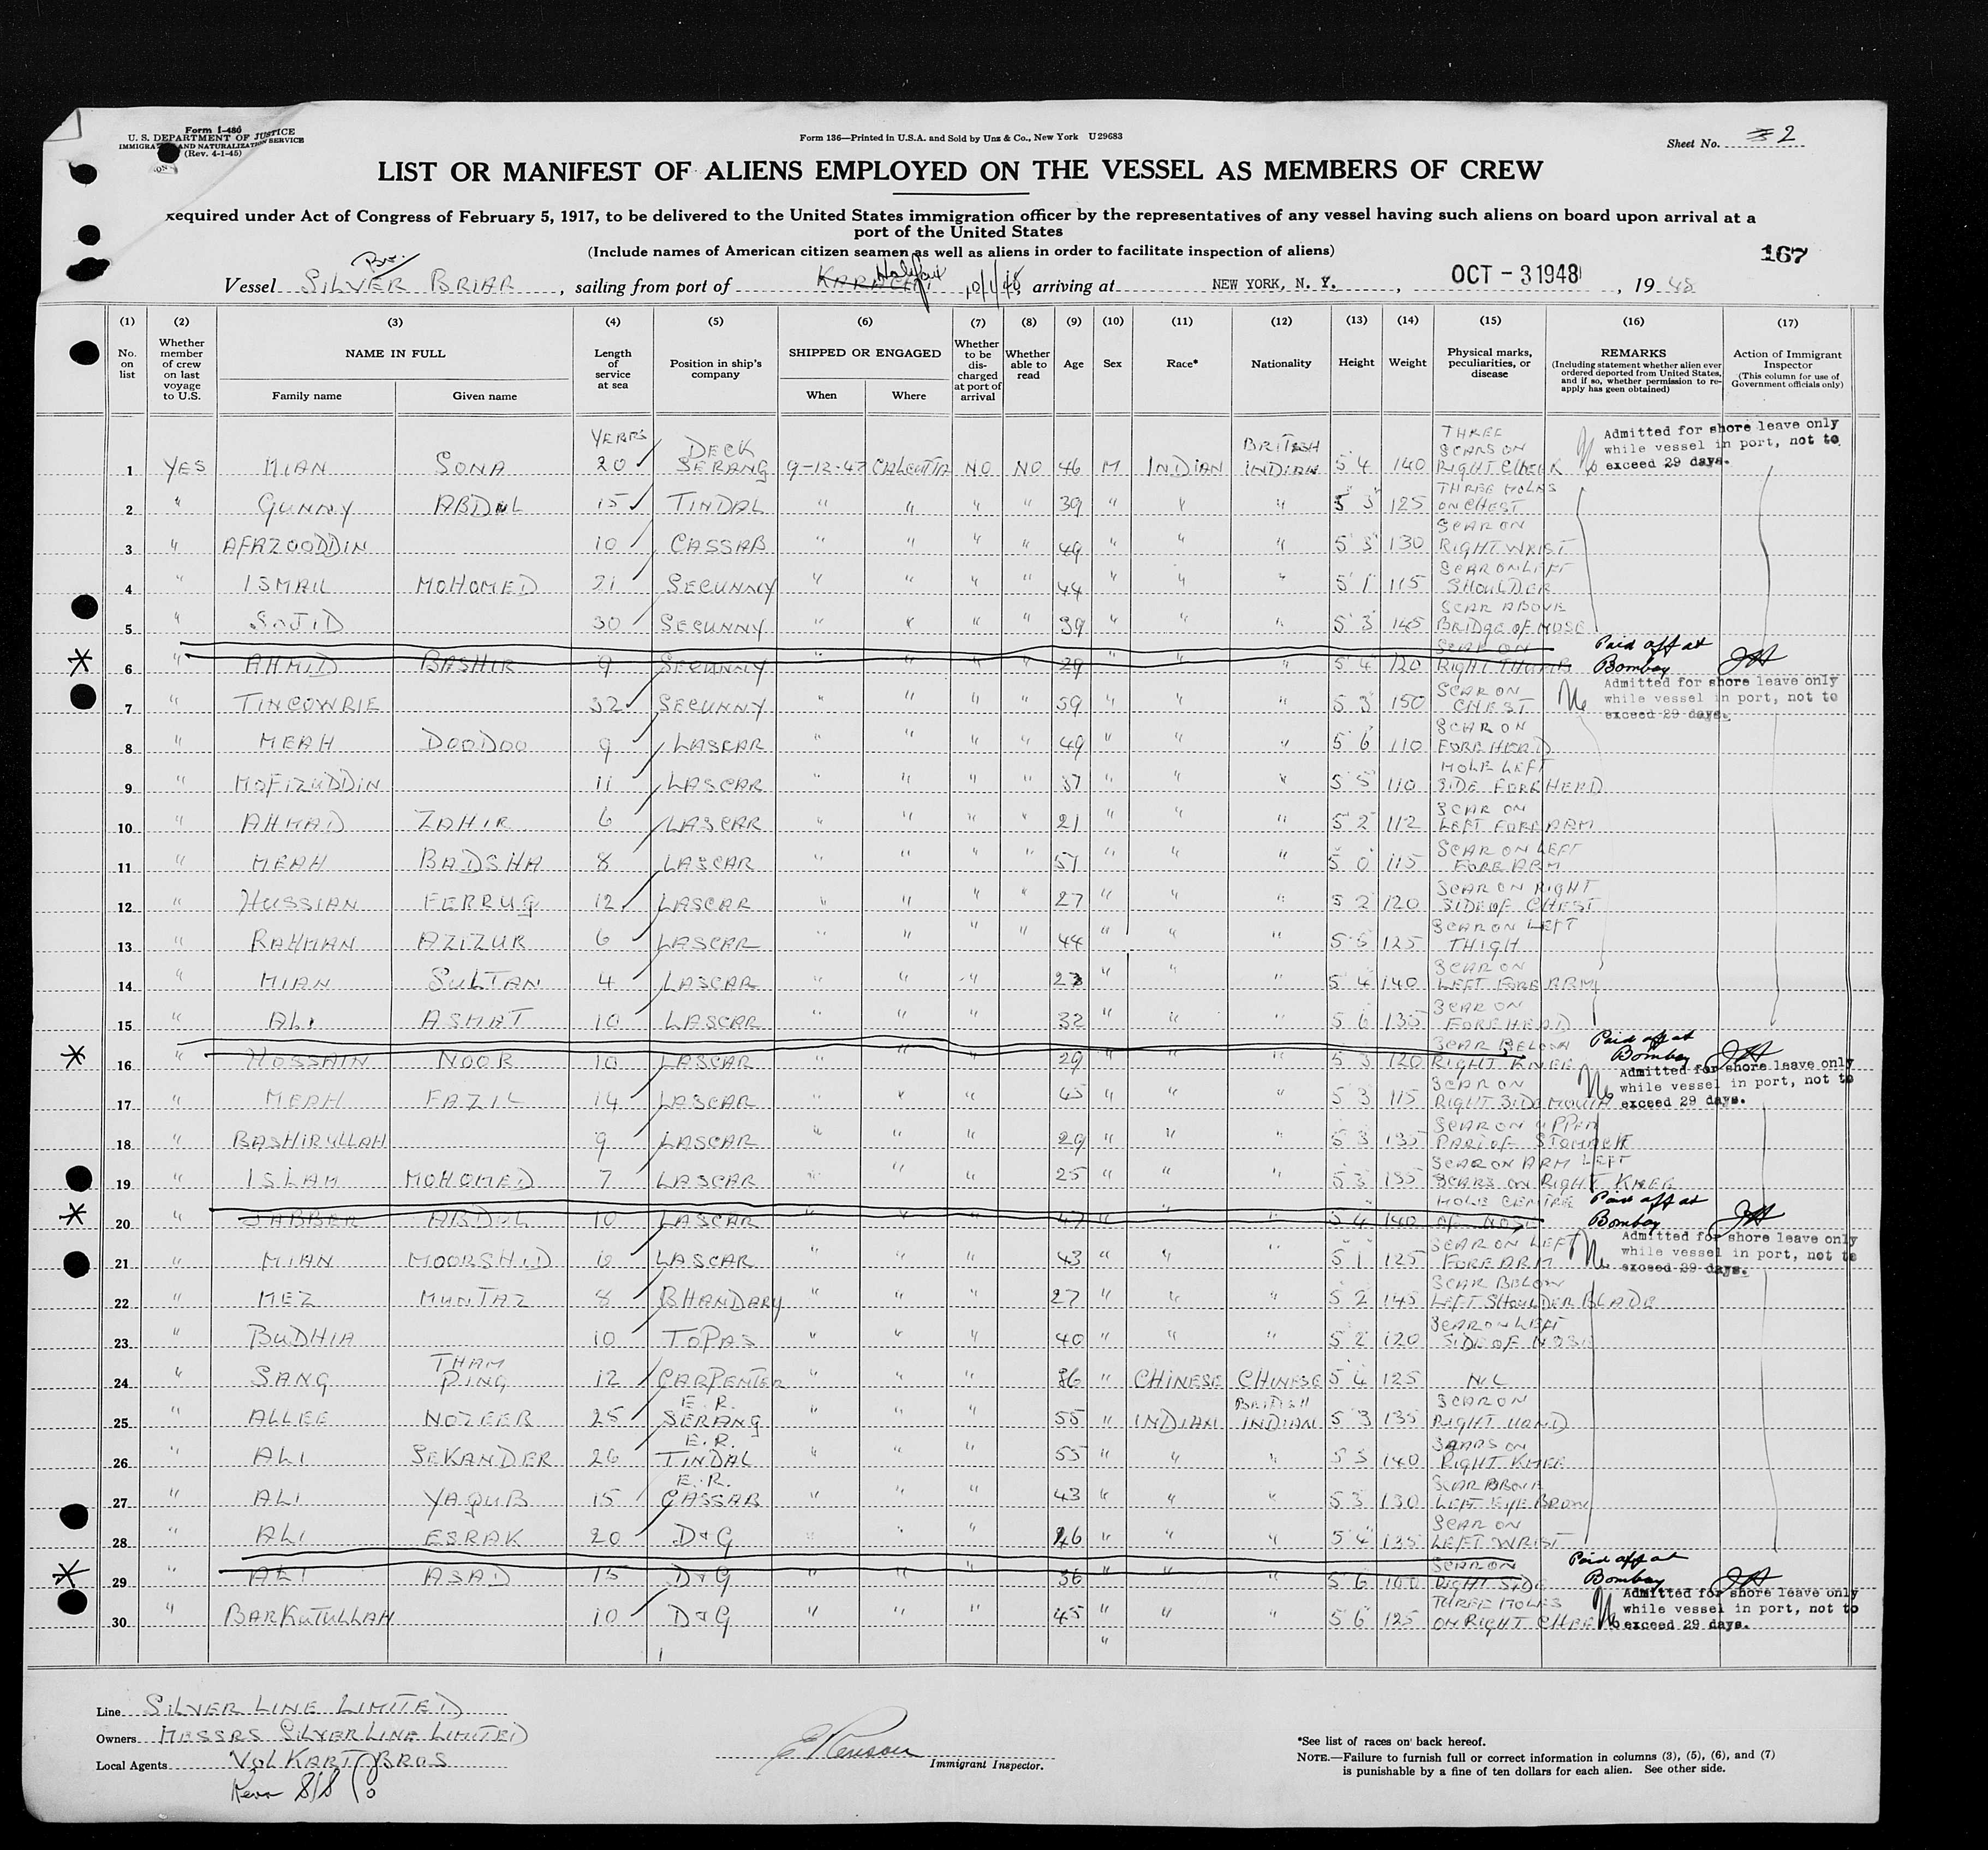 Form I-480
U. S. DEPARTMENT OF JUSTICE
IMMIGRATION AND NATURALIZATION SERVICE
(Rev. 4-1-45)
Form 136—Printed in U.S.A. and Sold by Unz & Co., New York U29683
Sheet No. 2
LIST OR MANIFEST OF ALIENS EMPLOYED ON THE VESSEL AS MEMBERS OF CREW
Required under Act of Congress of February 5, 1917, to be delivered to the United States immigration officer by the representatives of any vessel having such aliens on board upon arrival at a
port of the United States
(Include names of American citizen seamen as well as aliens in order to facilitate inspection of aliens)
167
Br.
Vessel SILVER BRIAR, sailing from port of KARACHI Halifax 10/1/48, arriving at NEW YORK, N. Y., OCT - 3 1948, 19 48
(1) (2) (3) (4) (5) (6) (7) (8) (9) (10) (11) (12) (13) (14) (15) (16) (17)
No. on list
Whether member of crew on last voyage to U.S.
NAME IN FULL
Family name
Given name
Length of service at sea
Position in ship's company
SHIPPED OR ENGAGED
When
Where
Whether to be discharged at port of arrival
Whether able to read
Age
Sex
Race*
Nationality
Height
Weight
Physical marks, peculiarities, or disease
REMARKS
(Including statement whether alien ever ordered deported from United States, and if so, whether permission to re-apply has geen obtained)
Action of Immigrant Inspector
(This column for use of Government officials only)
1 YES MIAN SONA YEARS 20 DECK SERANG 9-12-47 CALCUTTA NO NO 46 M INDIAN BRITISH INDIAN 5 4 140 THREE SCARS ON RIGHT CHEEK
Admitted for shore leave only
while vessel in port, not to
exceed 29 days.
2 " GUNNY ABDUL 15 TINDAL " " " " 39 " " " 5 3 125 THREE MOLES ON CHEST
3 " AFAZOODDIN 10 CASSAB " " " " 49 " " " 5 3 130 SCAR ON RIGHT WRIST
4 " ISMAIL MOHOMED 21 SECUNNY " " " " 44 " " " 5 1 115 SCAR ON LEFT SHOULDER
5 " SAJID 30 SECUNNY " " " " 39 " " " 5 3 145 SCAR ABOVE BRIDGE OF NOSE
6 " AHMID BASHIR 9 SECUNNY " " " " 29 " " " 5 4 120 SCAR ON RIGHT THUMB Paid off at Bombay JH
7 " TINCOWRIE 32 SECUNNY " " " " 59 " " " 5 3 150 SCAR ON CHEST
Admitted for shore leave only
while vessel in port, not to
exceed 29 days.
8 " MEAH DOODOO 9 LASCAR " " " " 49 " " " 5 6 110 SCAR ON FOREHEAD
9 " MOFIZUDDIN 11 LASCAR " " " " 37 " " " 5 5 110 MOLE LEFT SIDE FOREHEAD
10 " AHMAD ZAHIR 6 LASCAR " " " " 21 " " " 5 2 112 SCAR ON LEFT FOREARM
11 " MEAH BADSHA 8 LASCAR " " " " 51 " " " 5 0 115 SCAR ON LEFT FOREARM
12 " HUSSIAN FERRUG 12 LASCAR " " " " 27 " " " 5 2 120 SCAR ON RIGHT SIDE OF CHEST
13 " RAHMAN AZIZUR 6 LASCAR " " " " 44 " " " 5 5 125 SCAR ON LEFT THIGH
14 " MIAN SULTAN 4 LASCAR " " " 23 " " " 5 4 140 SCAR ON LEFT FOREARM
15 " ALI ASMAT 10 LASCAR " " " 32 " " " 5 6 135 SCAR ON FOREHEAD
16 " HOSSAIN NOOR 10 LASCAR " " " 29 " " " 5 3 120 SCAR BELOW RIGHT KNEE Paid off at Bombay JH
17 " MEAH FAZIL 14 LASCAR " " " 45 " " " 5 3 115 SCAR ON RIGHT SIDE MOUTH
Admitted for shore leave only
while vessel in port, not to
exceed 29 days.
18 " BASHIRULLAH 9 LASCAR " " " 29 " " " 5 3 135 SCAR ON UPPER PART OF STOMACH
19 " ISLAM MOHOMED 7 LASCAR " " " 25 " " " 5 3 135 SCAR ON ARM LEFT SCARS ON RIGHT KNEE
20 " JABBER ABDUL 10 LASCAR " " " 47 " " " 5 4 140 MOLE CENTRE OF NOSE Paid off at Bombay JH
21 " MIAN MOORSHID 6 LASCAR " " " 43 " " " 5 1 125 SCAR ON LEFT FOREARM
Admitted for shore leave only
while vessel in port, not to
exceed 29 days.
22 " MEZ MUNTAZ 8 BHANDARY " " " 27 " " " 5 2 145 SCAR BELOW LEFT SHOULDER BLADE
23 " BUDHIA 10 TOPAS " " " 40 " " " 5 2 120 SCAR ON LEFT SIDE OF NOSE
24 " SANG THAM PING 12 CARPENTER " " " 36 " CHINESE CHINESE 5 4 125 NIL
25 " ALLEE NOZEER 25 E.R. SERANG " " " 55 " INDIAN BRITISH INDIAN 5 3 135 SCAR ON RIGHT HAND
26 " ALI SEKANDER 26 E.R. TINDAL " " " 55 " " " 5 5 140 SCARS ON RIGHT KNEE
27 " ALI YAQUB 15 E.R. CASSAB " " " 43 " " " 5 3 130 SCAR ABOVE LEFT EYE BROW
28 " ALI ESRAK 20 D & G " " " 46 " " " 5 4 135 SCAR ON LEFT WRIST
29 " ALI ASAD 15 D & G " " " 36 " " " 5 6 100 SCAR ON RIGHT SIDE Paid off at Bombay JH
30 " BARKUTULLAH 10 D & G " " " 45 " " " 5 6 125 THREE MOLES ON RIGHT CHEEK
Admitted for shore leave only
while vessel in port, not to
exceed 29 days.
Line SILVER LINE LIMITED
Owners MESSRS SILVER LINE LIMITED
Local Agents VOLKART BROS
Immigrant Inspector.
*See list of races on back hereof.
NOTE.—Failure to furnish full or correct information in columns (3), (5), (6), and (7)
is punishable by a fine of ten dollars for each alien. See other side.